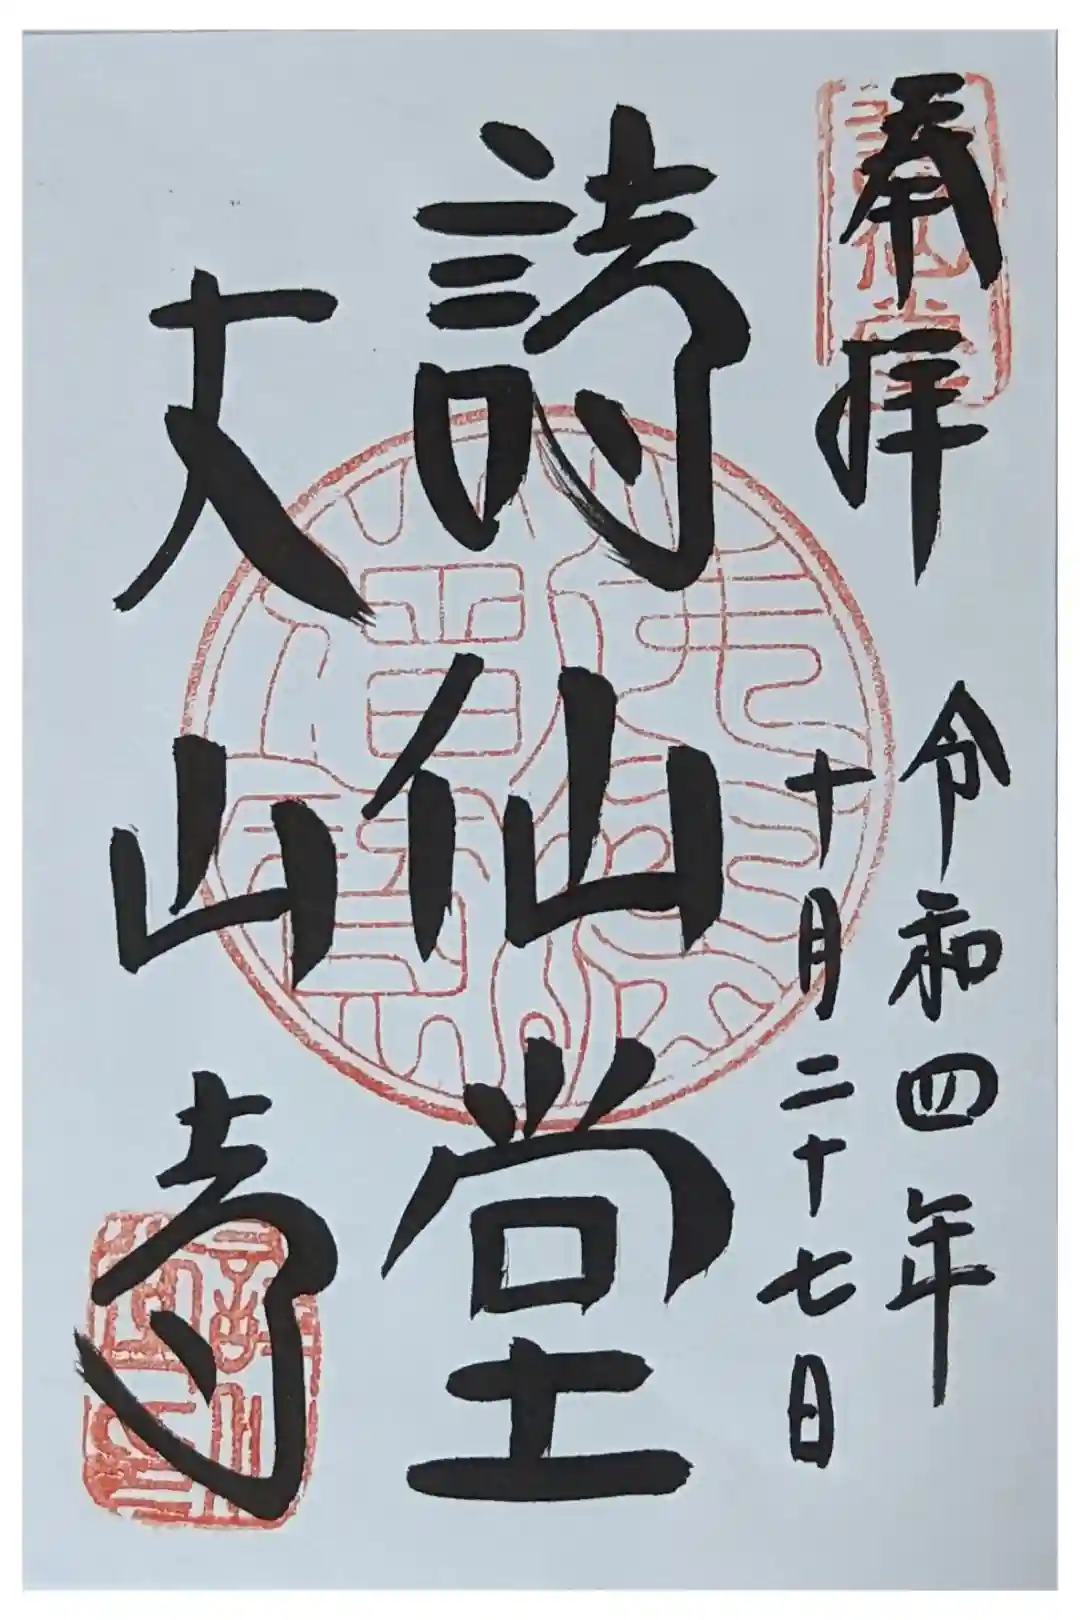 奉拝
令和四年
十月二十七日
詩仙堂
丈山寺